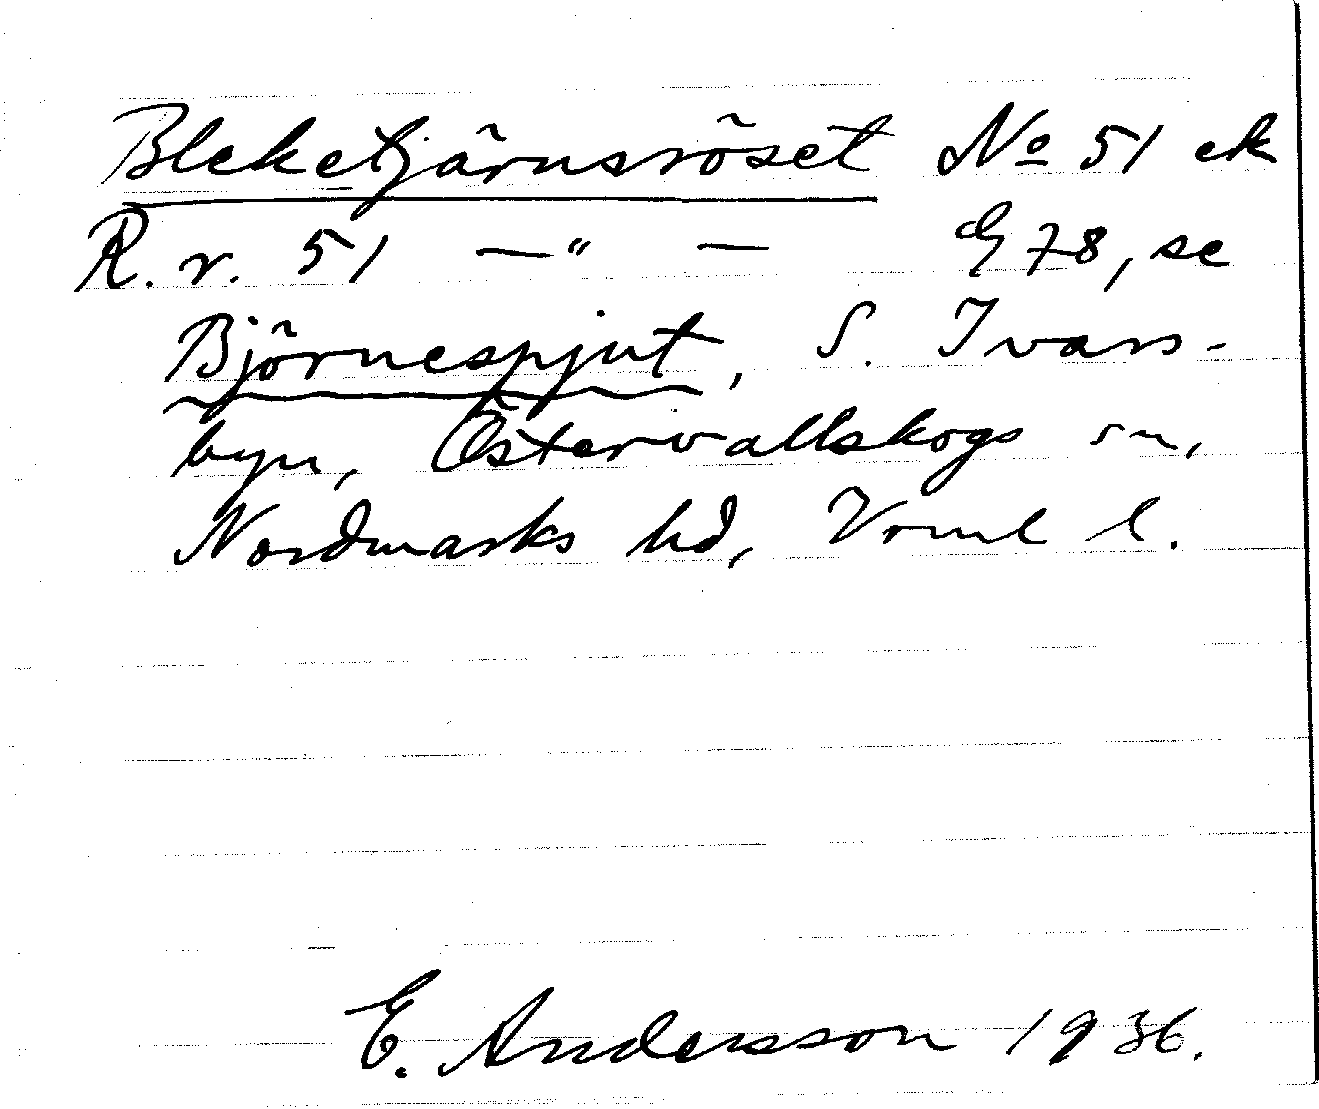 Bleketjärnsröset No 51 ek
R. v. 51 —"— G 78, se
Björnespjut, S. Ivars-
byn, Östervallskogs sn,
Nordmarks hd, Vrml l.
E. Andersson 1936.